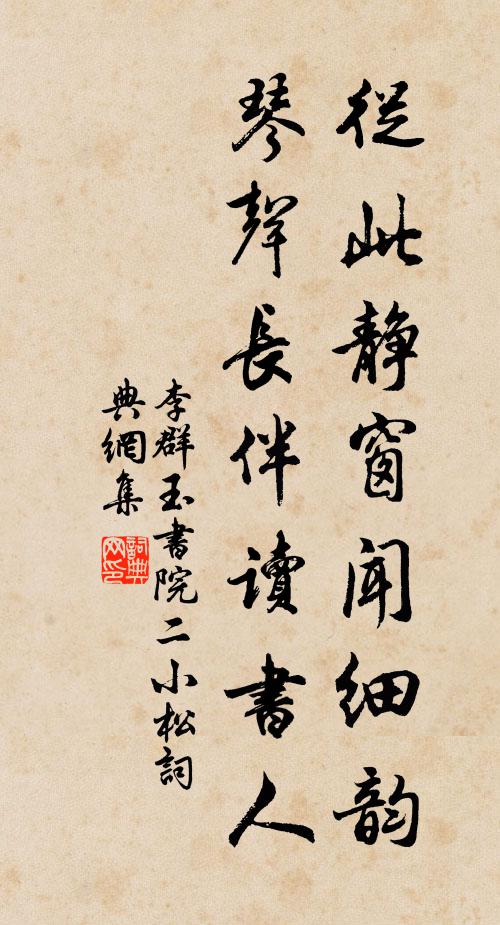 從此静窗聞細韵
琴聲長伴讀書人
李群玉書院二小松詞
典網集
詞典網印